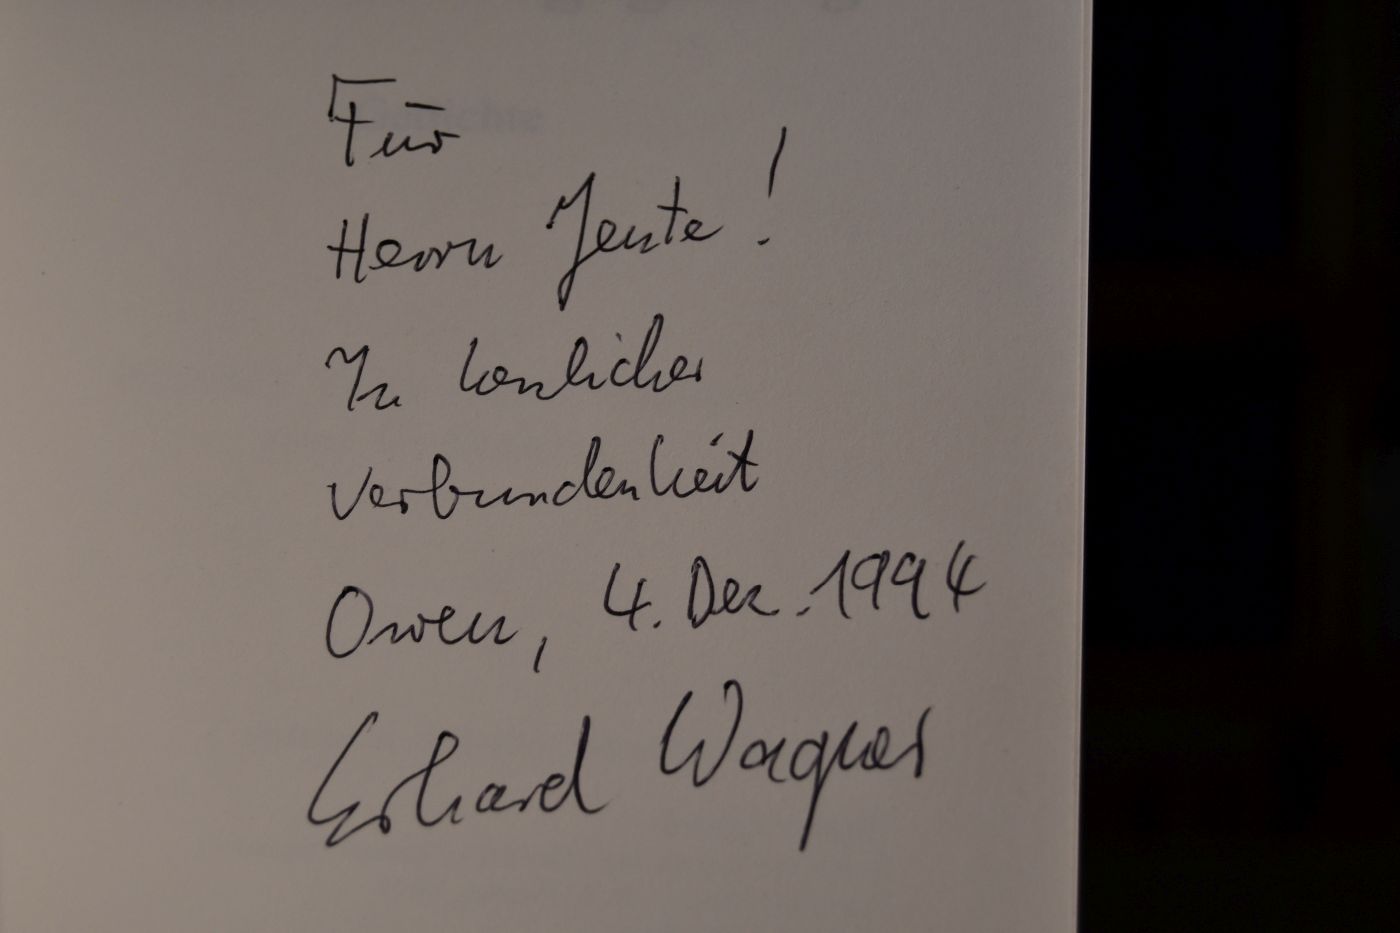 Für
Herrn Jente!
In herzlicher
Verbundenheit
Owen, 4. Dez. 1994
Erhard Wagner